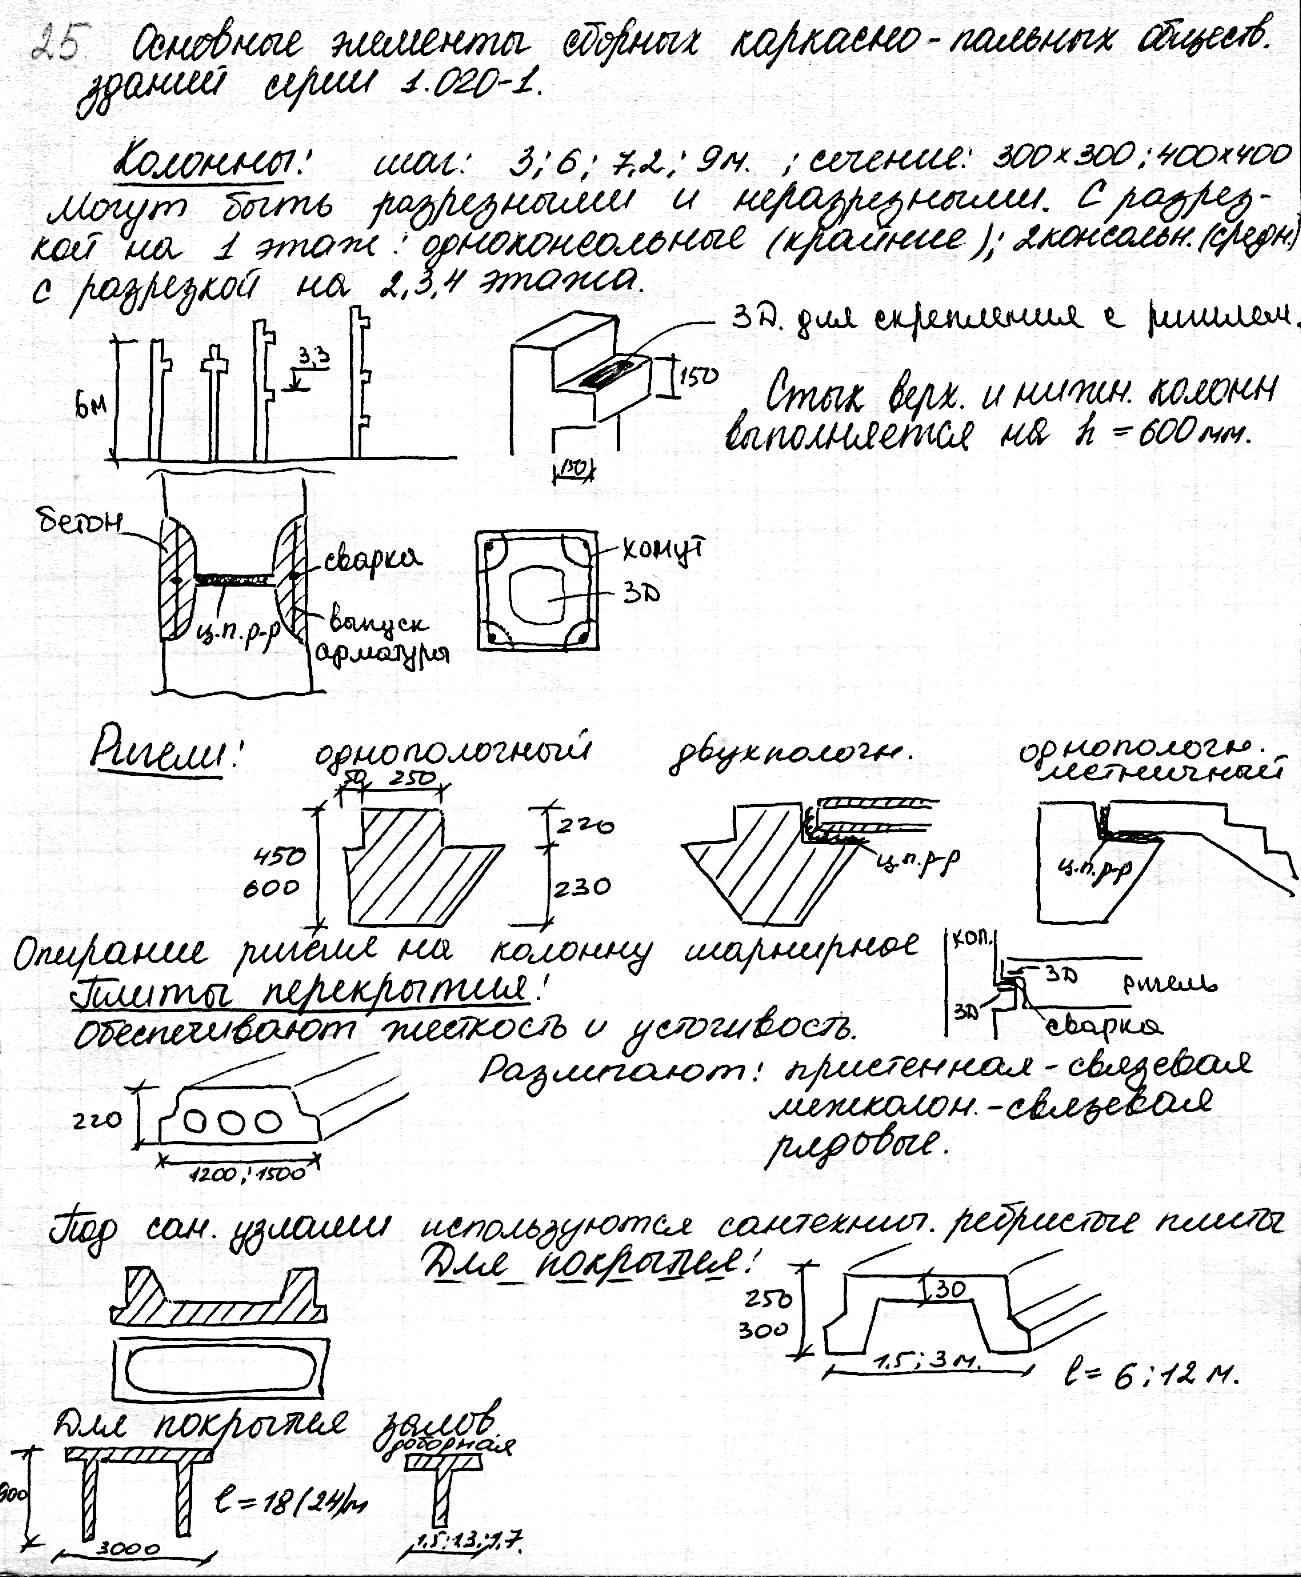 25. Основные элементы сборных каркасно-панельных обществ.
зданий серии 1.020-1.
Колонны: шаг: 3; 6; 7,2; 9м. ; сечение: 300х300; 400х400
Могут быть разрезными и неразрезными. С разрез-
кой на 1 этаж: одноконсольные (крайние); 2консольн. (средн.)
с разрезкой на 2,3,4 этажа.
3Д. для скрепления с ригилем.
3,3
6м
150
150
Стык верх. и нижн. колонн
выполняется на h = 600 мм.
бетон
сварка
ц.п.р-р
выпуск
арматуры
хомут
3Д
Ригели: однополочный двухполочн. однополочн.
лестничный
50 250
450
600
220
230
ц.п.р-р
ц.п.р-р
Опирание ригеля на колонну шарнирное
кол.
3Д
ригель
3Д
сварка
Плиты перекрытия:
Обеспечивают жесткость и устогивость.
Различают: пристенная-связевая
межколон.-связевая
рядовые.
220
1200; 1500
Под сан. узлами используются сантехнич. ребристые плиты
Для покрытия:
250
300
30
1.5; 3 м.
l = 6; 12 м.
Для покрытия залов.
доборная
l = 18 (24) м
3000
1.5; 1.3; 1.7.